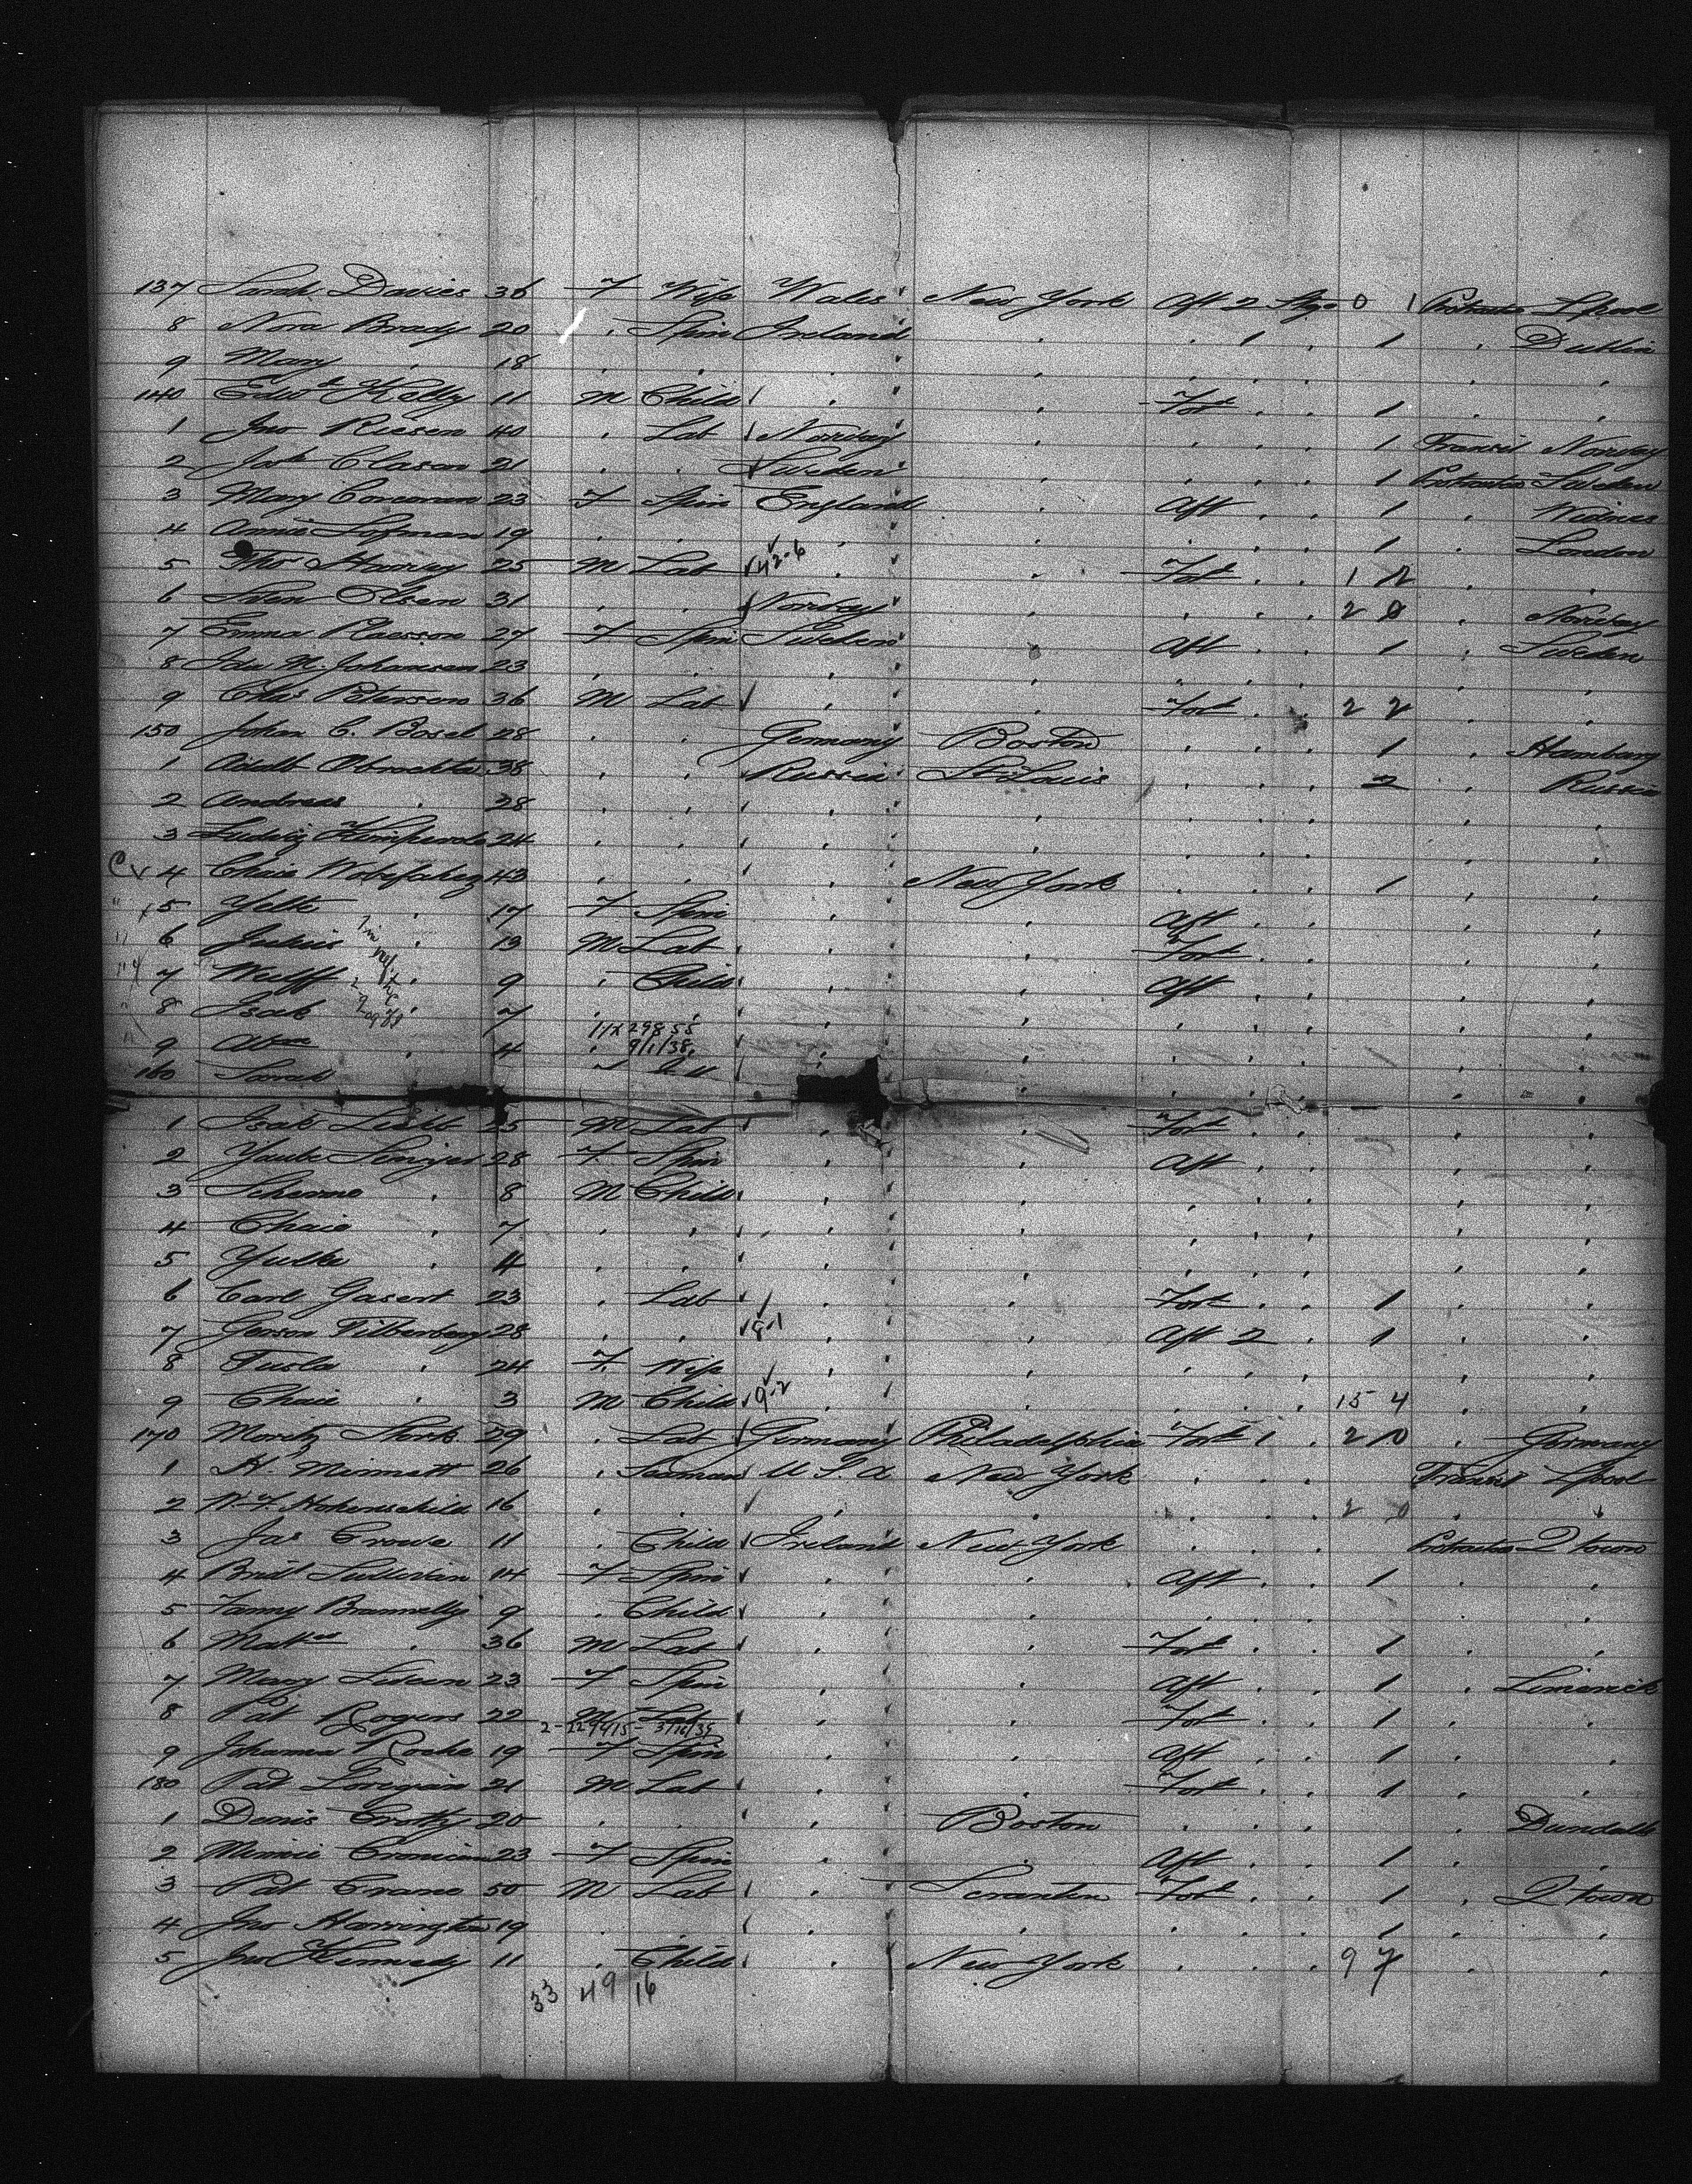 137 Sarah Davies 36 F Wife Wales New York Aft 2 Stge 0 1 Protracted L'pool
8 Nora Brady 20 " Spin Ireland " " 1 " 1 " Dublin
9 Mary " 18 " " " " " " " " "
140 Edwd Kelly 11 M Child " " Fort " " 1 " "
1 Jno Riesen 40 " Lab Norway " " " " 1 Transit Norway
2 Joh Clason 21 " " Sweden " " " " 1 Protracted Sweden
3 Mary Corcoran 23 F Spin England " Aft " " 1 " Widnes
4 Annie Lofman 19 " " " " " " " 1 " London
5 Thos Harvey 25 M Lab 42-6 " " Fort " " 1 " "
6 Sven Olsen 31 " " Norway " " " " 2 0 " Norway
7 Emma Claesson 27 F Spin Sweden " Aft " " 1 " Sweden
8 Ida M. Johansson 23 " " " " " " " " "
9 Chas Peterson 36 M Lab " " Fort " " 2 2 " "
150 Johan C. Bosel 28 " " Germany Boston " " " 1 " Hamburg
1 Adalb Obrochta 38 " " Russia St Louis " " " 2 " Russia
2 Andreas " 28 " " " " " " " " "
3 Ludwig 24 " " " " " " " " "
4 Chaie 43 " " " New York " " " 1 " "
5 Yette " 17 F Spin " " Aft " " " "
6 Julius " 19 M Lab " " Fort " " " "
7 Wulff " 9 " Child " " Aft " " " "
8 Isak " 7 " " " " " " " " "
11x29855
9 Abm " 4 " 9/1/38 " " " " " " "
160 Sarah
1 Isak 25 M Lab " " Fort " " " "
2 28 F Spin " " Aft " " " "
3 " 8 M Child " " " " " " "
4 Chaie " 7 " " " " " " " " "
5 Yulke " 4 " " " " " " " " "
6 Carl Gasert 23 " Lab " " Fort " " 1 " "
7 Gerson Silberberg 28 " " 8-1 " " Aft 2 " 1 " "
8 " 24 F Wife " " " " " " "
9 Chaie " 3 M Child 9-2 " " " " " 15 4 " "
170 Moritz Stork 29 " Lab Germany Philadelphia Fort 1 " 2 0 " Germany
1 H. Minnett 26 " Seaman U.S.A. New York " " " Transit L'pool
2 16 " " " " " " " 2 0 " "
3 Jas Crowe 11 " Child Ireland New York " " " Protracted Q'town
4 Bridt Sullivan 14 F Spin " " Aft " " 1 " "
5 Fanny Brannelly 9 " Child " " " " " " "
6 Matt " 36 M Lab " " Fort " " 1 " "
7 Mary 23 F Spin " " Aft " " 1 " Limerick
8 Pat Rogers 22 M Lab " " Fort " " 1 " "
9 Johanna Roche 19 F Spin " " Aft " " 1 " "
180 Pat 21 M Lab " " Fort " " 1 " "
1 Denis Crotty 20 " " " Boston " " " " Dundalk
2 Minnie Cronican 23 F Spin " " Aft " " 1 " "
3 Pat Crane 50 M Lab " Scranton Fort " " 1 " Q'town
4 Jno Harrington 19 " " " " " " " 1 " "
5 Jno Kennedy 11 " Child " New York " " " 9 7 " "
33 49 16